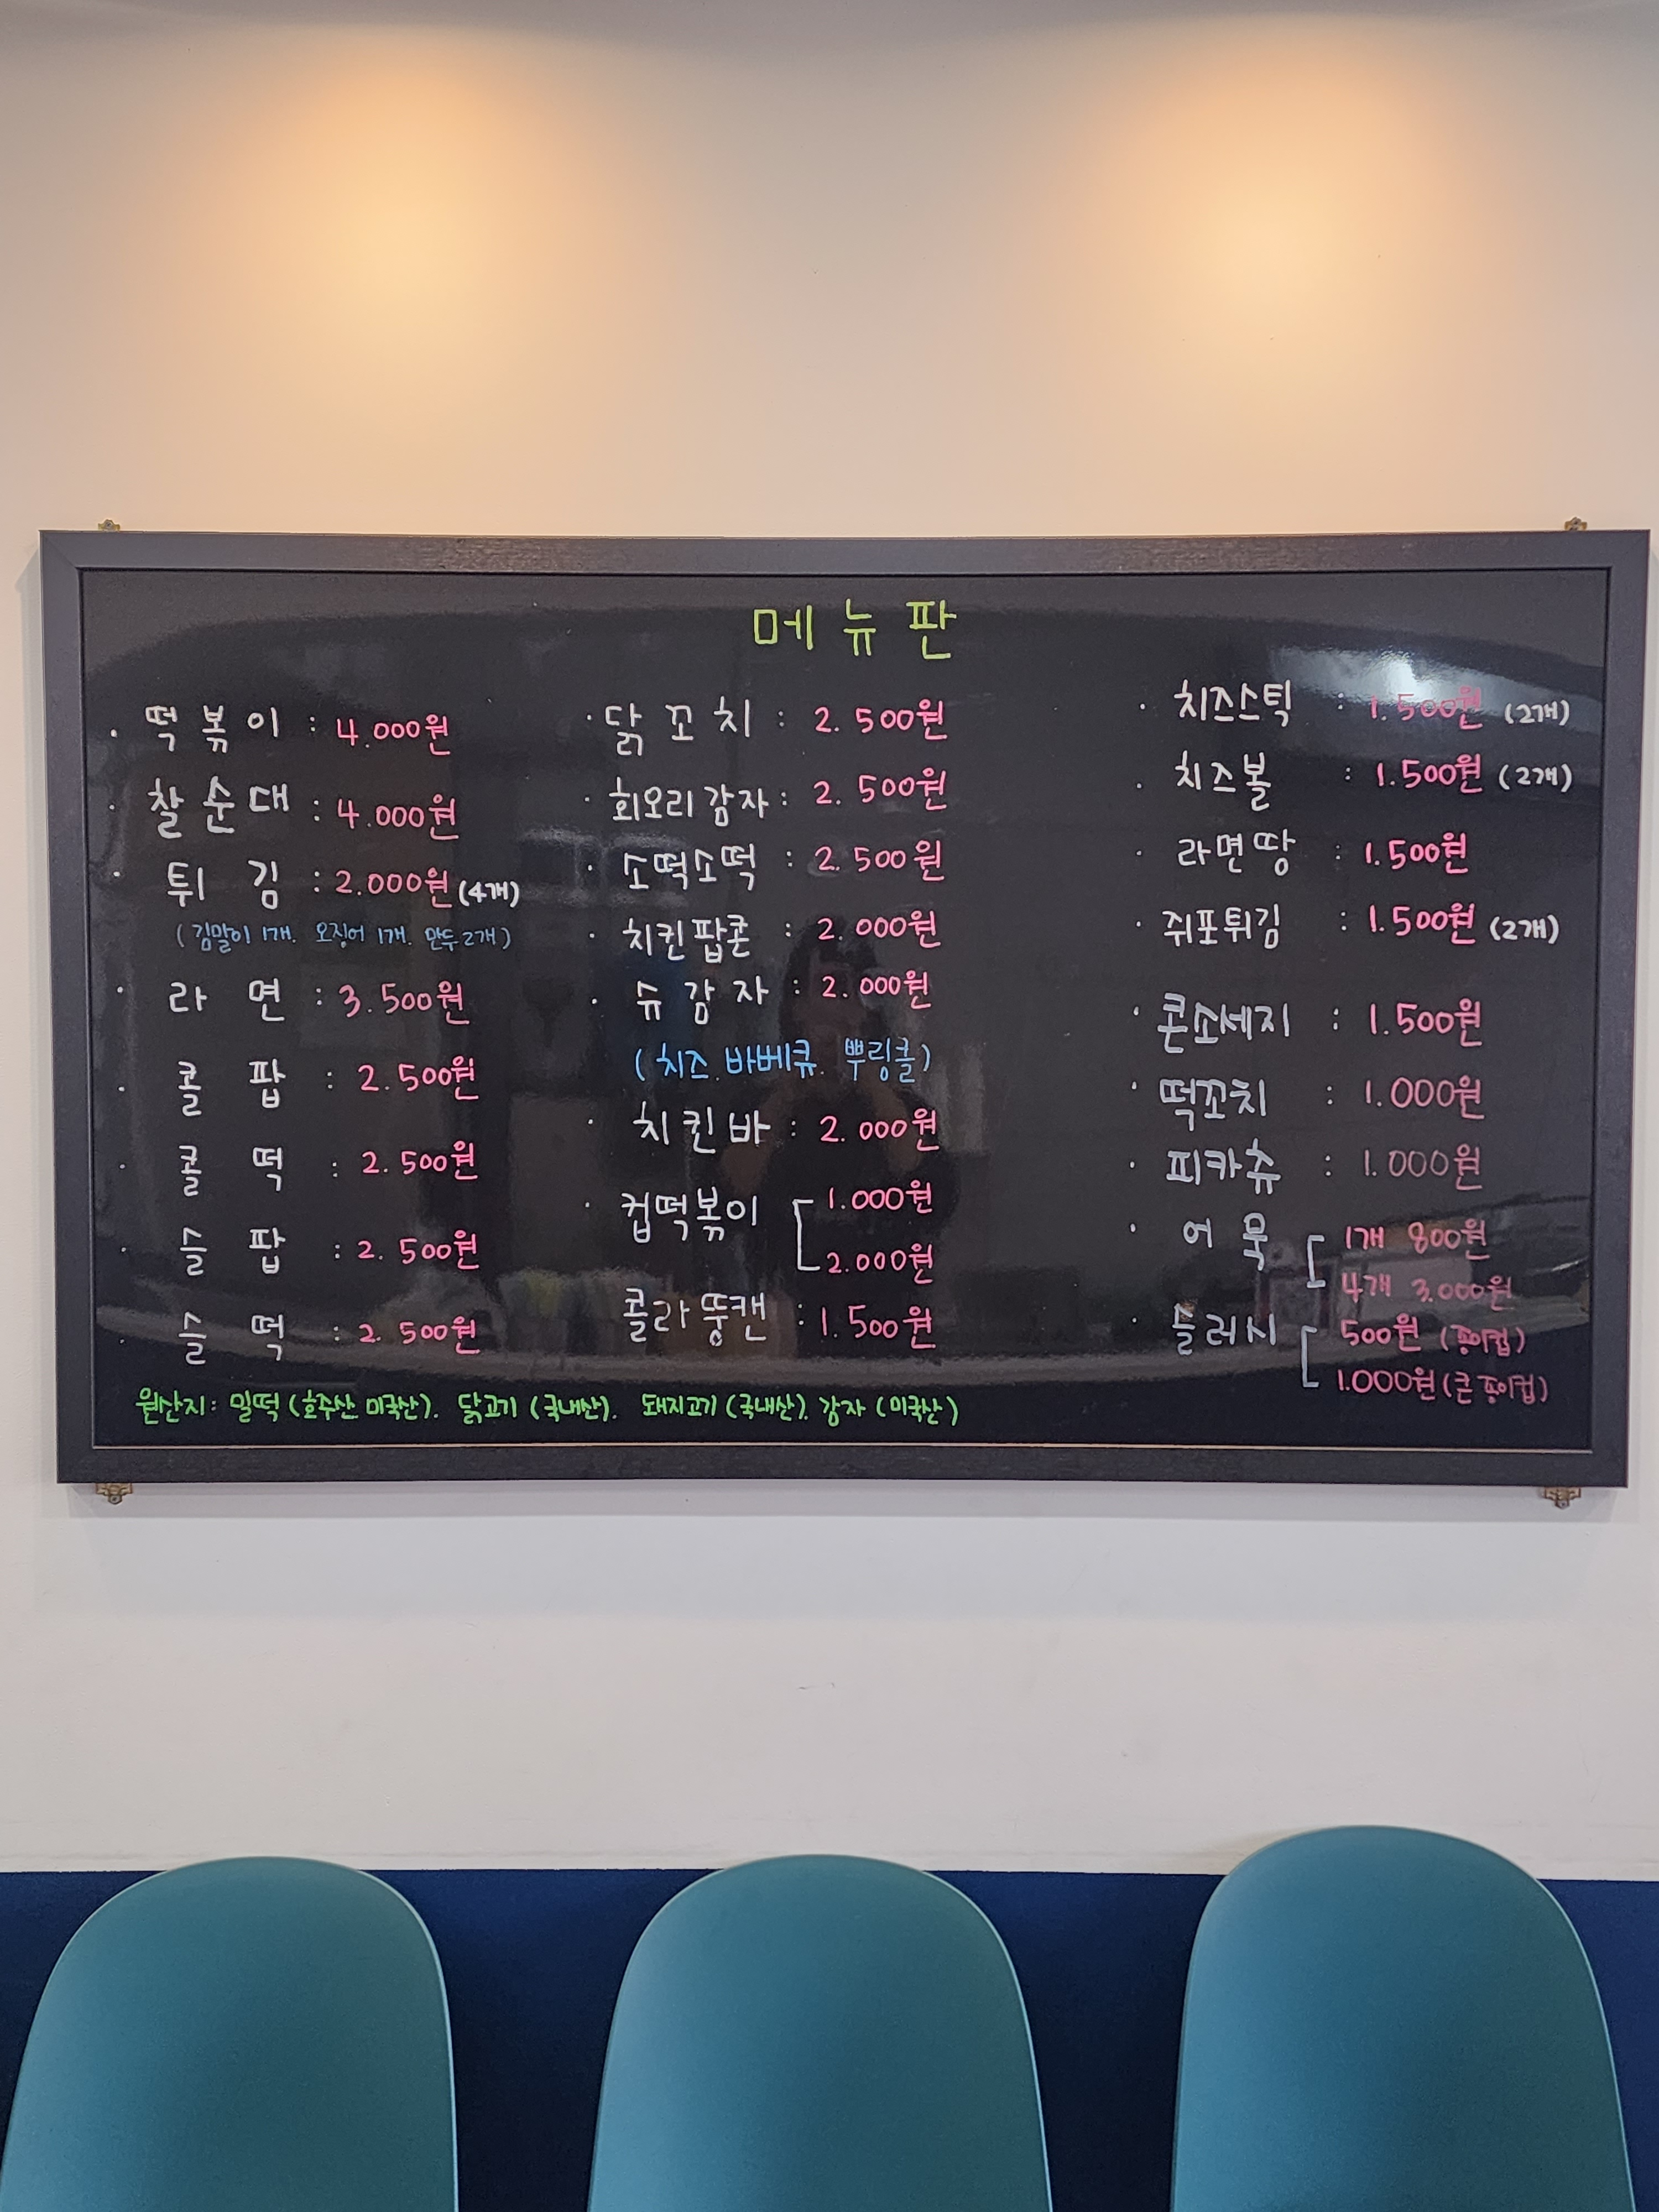 메뉴판
· 떡볶이 : 4.000원
· 찰순대 : 4.000원
· 튀김 : 2.000원 (4개)
(김말이 1개. 오징어 1개. 만두 2개)
· 라면 : 3.500원
· 콜팝 : 2.500원
· 콜떡 : 2.500원
· 슬팝 : 2.500원
· 슬떡 : 2.500원
· 닭꼬치 : 2.500원
· 회오리감자 : 2.500원
· 소떡소떡 : 2.500원
· 치킨팝콘 : 2.000원
· 슈감자 : 2.000원
(치즈. 바베큐. 뿌링클)
· 치킨바 : 2.000원
· 컵떡볶이 1.000원
2.000원
콜라뚱캔 : 1.500원
· 치즈스틱 : 1.500원 (2개)
· 치즈볼 : 1.500원 (2개)
· 라면땅 : 1.500원
· 쥐포튀김 : 1.500원 (2개)
· 콘소세지 : 1.500원
· 떡꼬치 : 1.000원
· 피카츄 : 1.000원
· 어묵 1개 800원
4개 3.000원
· 슬러시 500원 (종이컵)
1.000원 (큰 종이컵)
원산지: 밀떡 (호주산. 미국산). 닭고기 (국내산). 돼지고기 (국내산). 감자 (미국산)